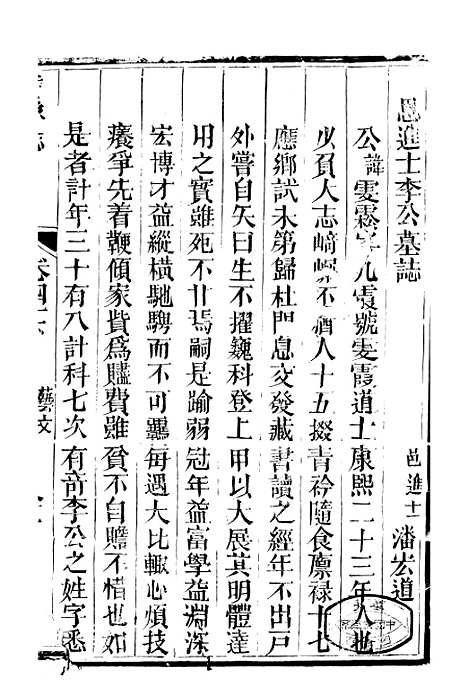 恩進士李公墓誌
邑進士潘宏道
公諱雯霖字九霞號雯霞道士康熙二十三年人也
少負大志崎嶇不猶人十五掇青衿隨食廪祿十七
應鄉試未第歸杜門息交發藏書讀之經年不出戸
外嘗自矢曰生不擢巍科登上甲以大展其明體達
用之實雖死不甘焉嗣是踰弱冠年益富學益淵深
宏博才益縱橫馳騁而不可羈每遇大比輒心煩技
癢爭先着鞭傾家貲爲贐費雖貧不自贍不惜也如
是者計年三十有八計科七次有苛李公之姓字悉
志
卷四下
藝文